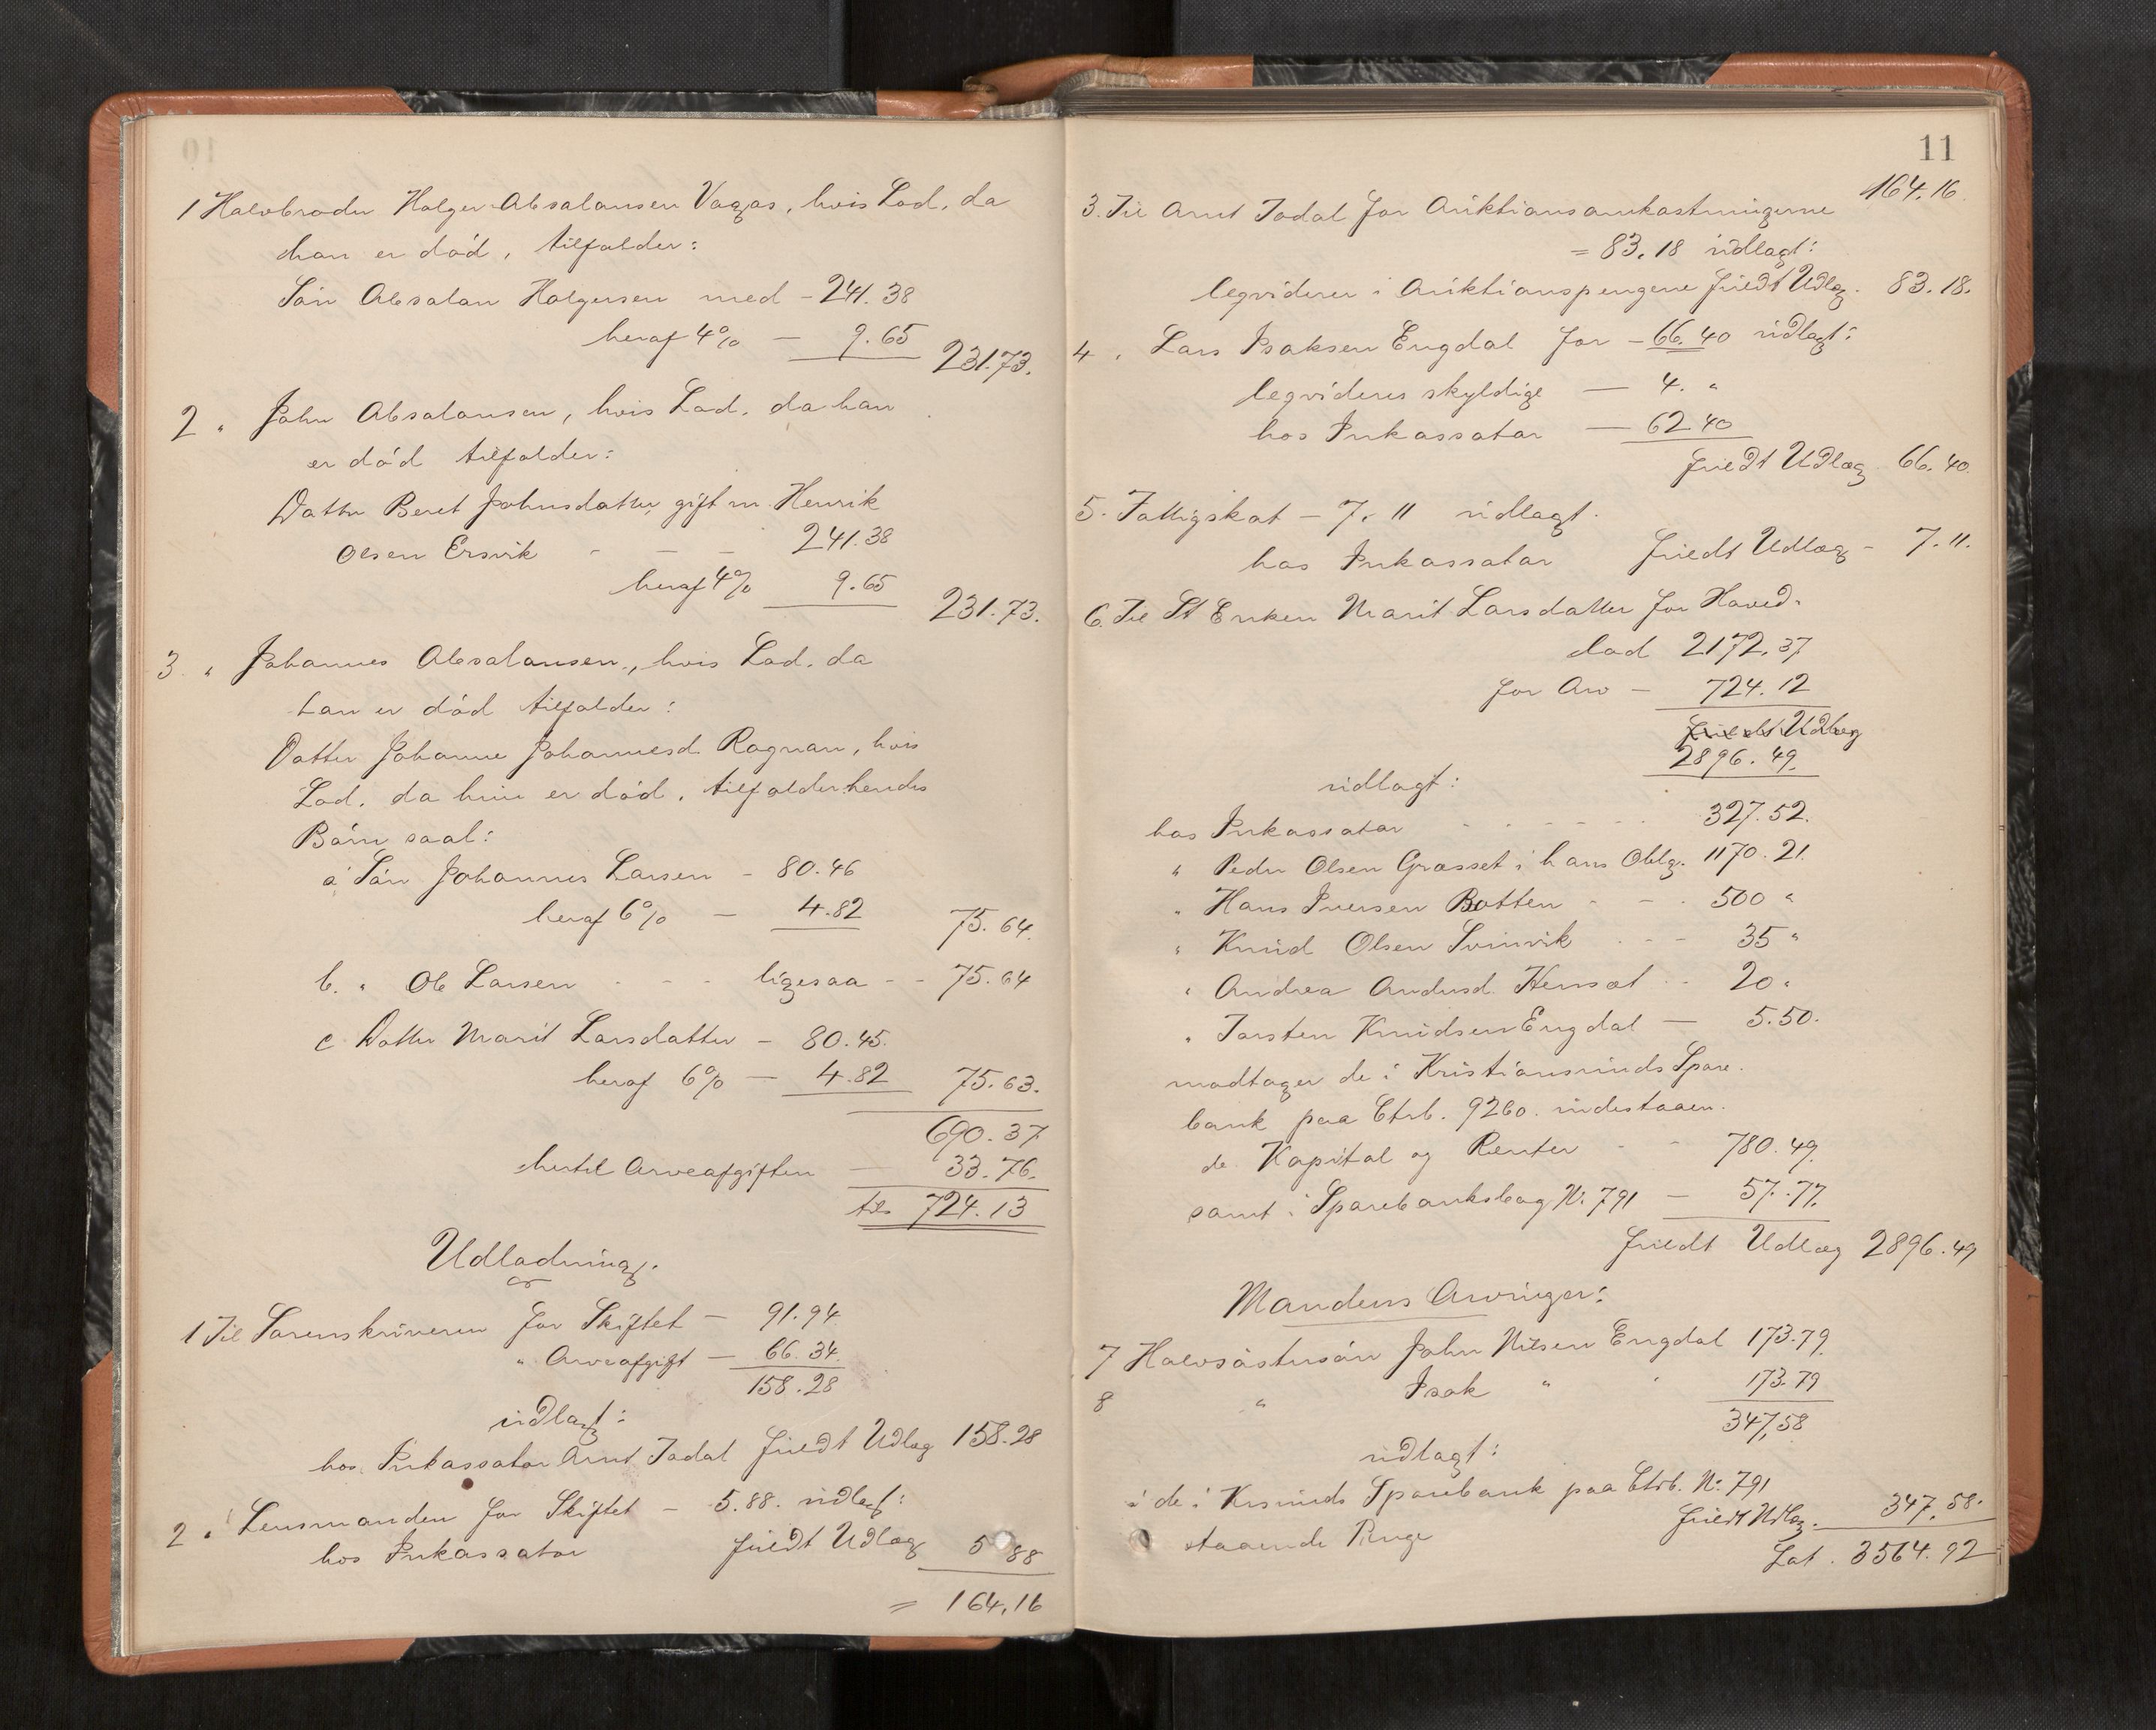 1 Halvbroder Holger Absalonsen Vaagos, hvis Lod, da
han er död, tilfalder:
Sön Absalon Holgersen med - 241.38
heraf 4% — 9.65 231.73.
2 " John Absalonsen, hvis Lod, da han
er död tilfalder:
Datter Beret Johnsdatter gift m Henrik
Olsen Ersvik - — — 241.38
heraf 4% 9.65 231.73.
3. " Johannes Absalonsen, hvis Lod, da
han er död tilfalder:
Datter Johanne Johannesd. Rognan, hvis
Lod, da hun er död, tilfalder hendes
Börn saal:
a Sön Johannes Larsen - 80.46
heraf 6% — 4.82 75.64.
b. " Ole Larsen - - - ligesaa - - 75.64
c Datter Marit Larsdatter - 80.45.
heraf 6% — 4.82 75.63.
690.37
hertil Arveafgiften — 33.76.
tils 724.13
Udlodning.
1 Til Sorenskriveren for Skiftet — 91.94
" Arveafgift — 66.34.
158.28
udlagt:
hos Inkassator Arnt Todal fuldt Udlæg 158.28
2 " Lensmanden for Skiftet — 5.88. udlagt:
hos Inkassator fuldt Udlæg 5 88
= 164.16
11
164.16.
3. Til Arnt Todal for Auktionsomkostningerne
= 83.18 udlagt:
leqviderer i Auktionspengene fuldt Udlæg. 83.18.
4 " Lars Isaksen Engdal for - 66.40 udlagt:
leqvideres skyldige — 4. "
hos Inkassator — 62.40
fuldt Udlæg 66.40.
5. Fattigskat — 7.11 udlagt.
hos Inkassator fuldt Udlæg - 7.11.
6. Til St Enken Marit Larsdatter for Hoved-
lod 2172.37
for Arv — 724.12
fuldt Udlæg
2896.49.
udlagt:
hos Inkassator - - - - - - 327.52.
" Peder Olsen Græsset i hans Oblg. 1170.21.
" Hans Iversen Botten - - - 500 "
" Knud Olsen Svinvik - - - 35 "
" Andrea Andersd. Henset - - 20 "
" Torsten Knudsen Engdal — 5.50.
modtager de i Kristiansunds Spare-
bank paa Ctrb. 9260. indestaaen-
de Kapital og Renter - - 780.49.
samt i Sparebanksbog N: 791 — 57.77.
fuldt Udlæg 2896.49
Mandens Arvinger:
7 Halvsöstersön John Nilsen Engdal 173.79.
8 " Isak " " 173.79
347.58
udlagt:
i de i Krsunds Sparebank paa Ctrb. N: 791
staaende Penge fuldt Udlæg. 347.58.
Lat. 3564.92